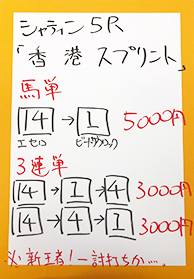 シャティン5R
「香港スプリント」
馬単
14 → 1 5000円
エセロ ビートザクロック
3連単
14 → 1 → 4 3000円
14 → 4 → 1 3000円
※新王者!一討ちか…。